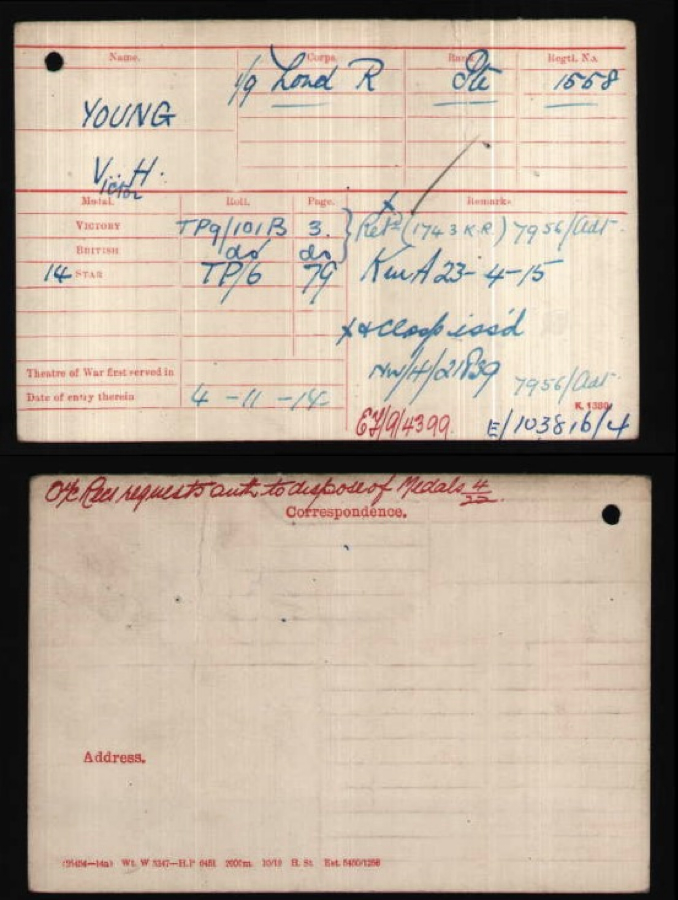 Name. Corps. Rank. Regtl. No.
1/9 Lond R Pte 1558
YOUNG
Victor H.
Medal. Roll. Page. Remarks
VICTORY TP9/101B 3. Retd (1743 K.R.) 7956/Adt
BRITISH do do
14 STAR TP/6 79 K in A 23-4-15
x & Clasp iss'd
NW/4/21839 7956/Adt
Theatre of War first served in
Date of entry therein 4-11-14
K. 1380
EY/9/4399. E/103816/4
O/c Recs requests auth to dispose of Medals 4/22.
Correspondence.
Address.
Wt. W 3347—H.P 2000m. 10/19 H. St.